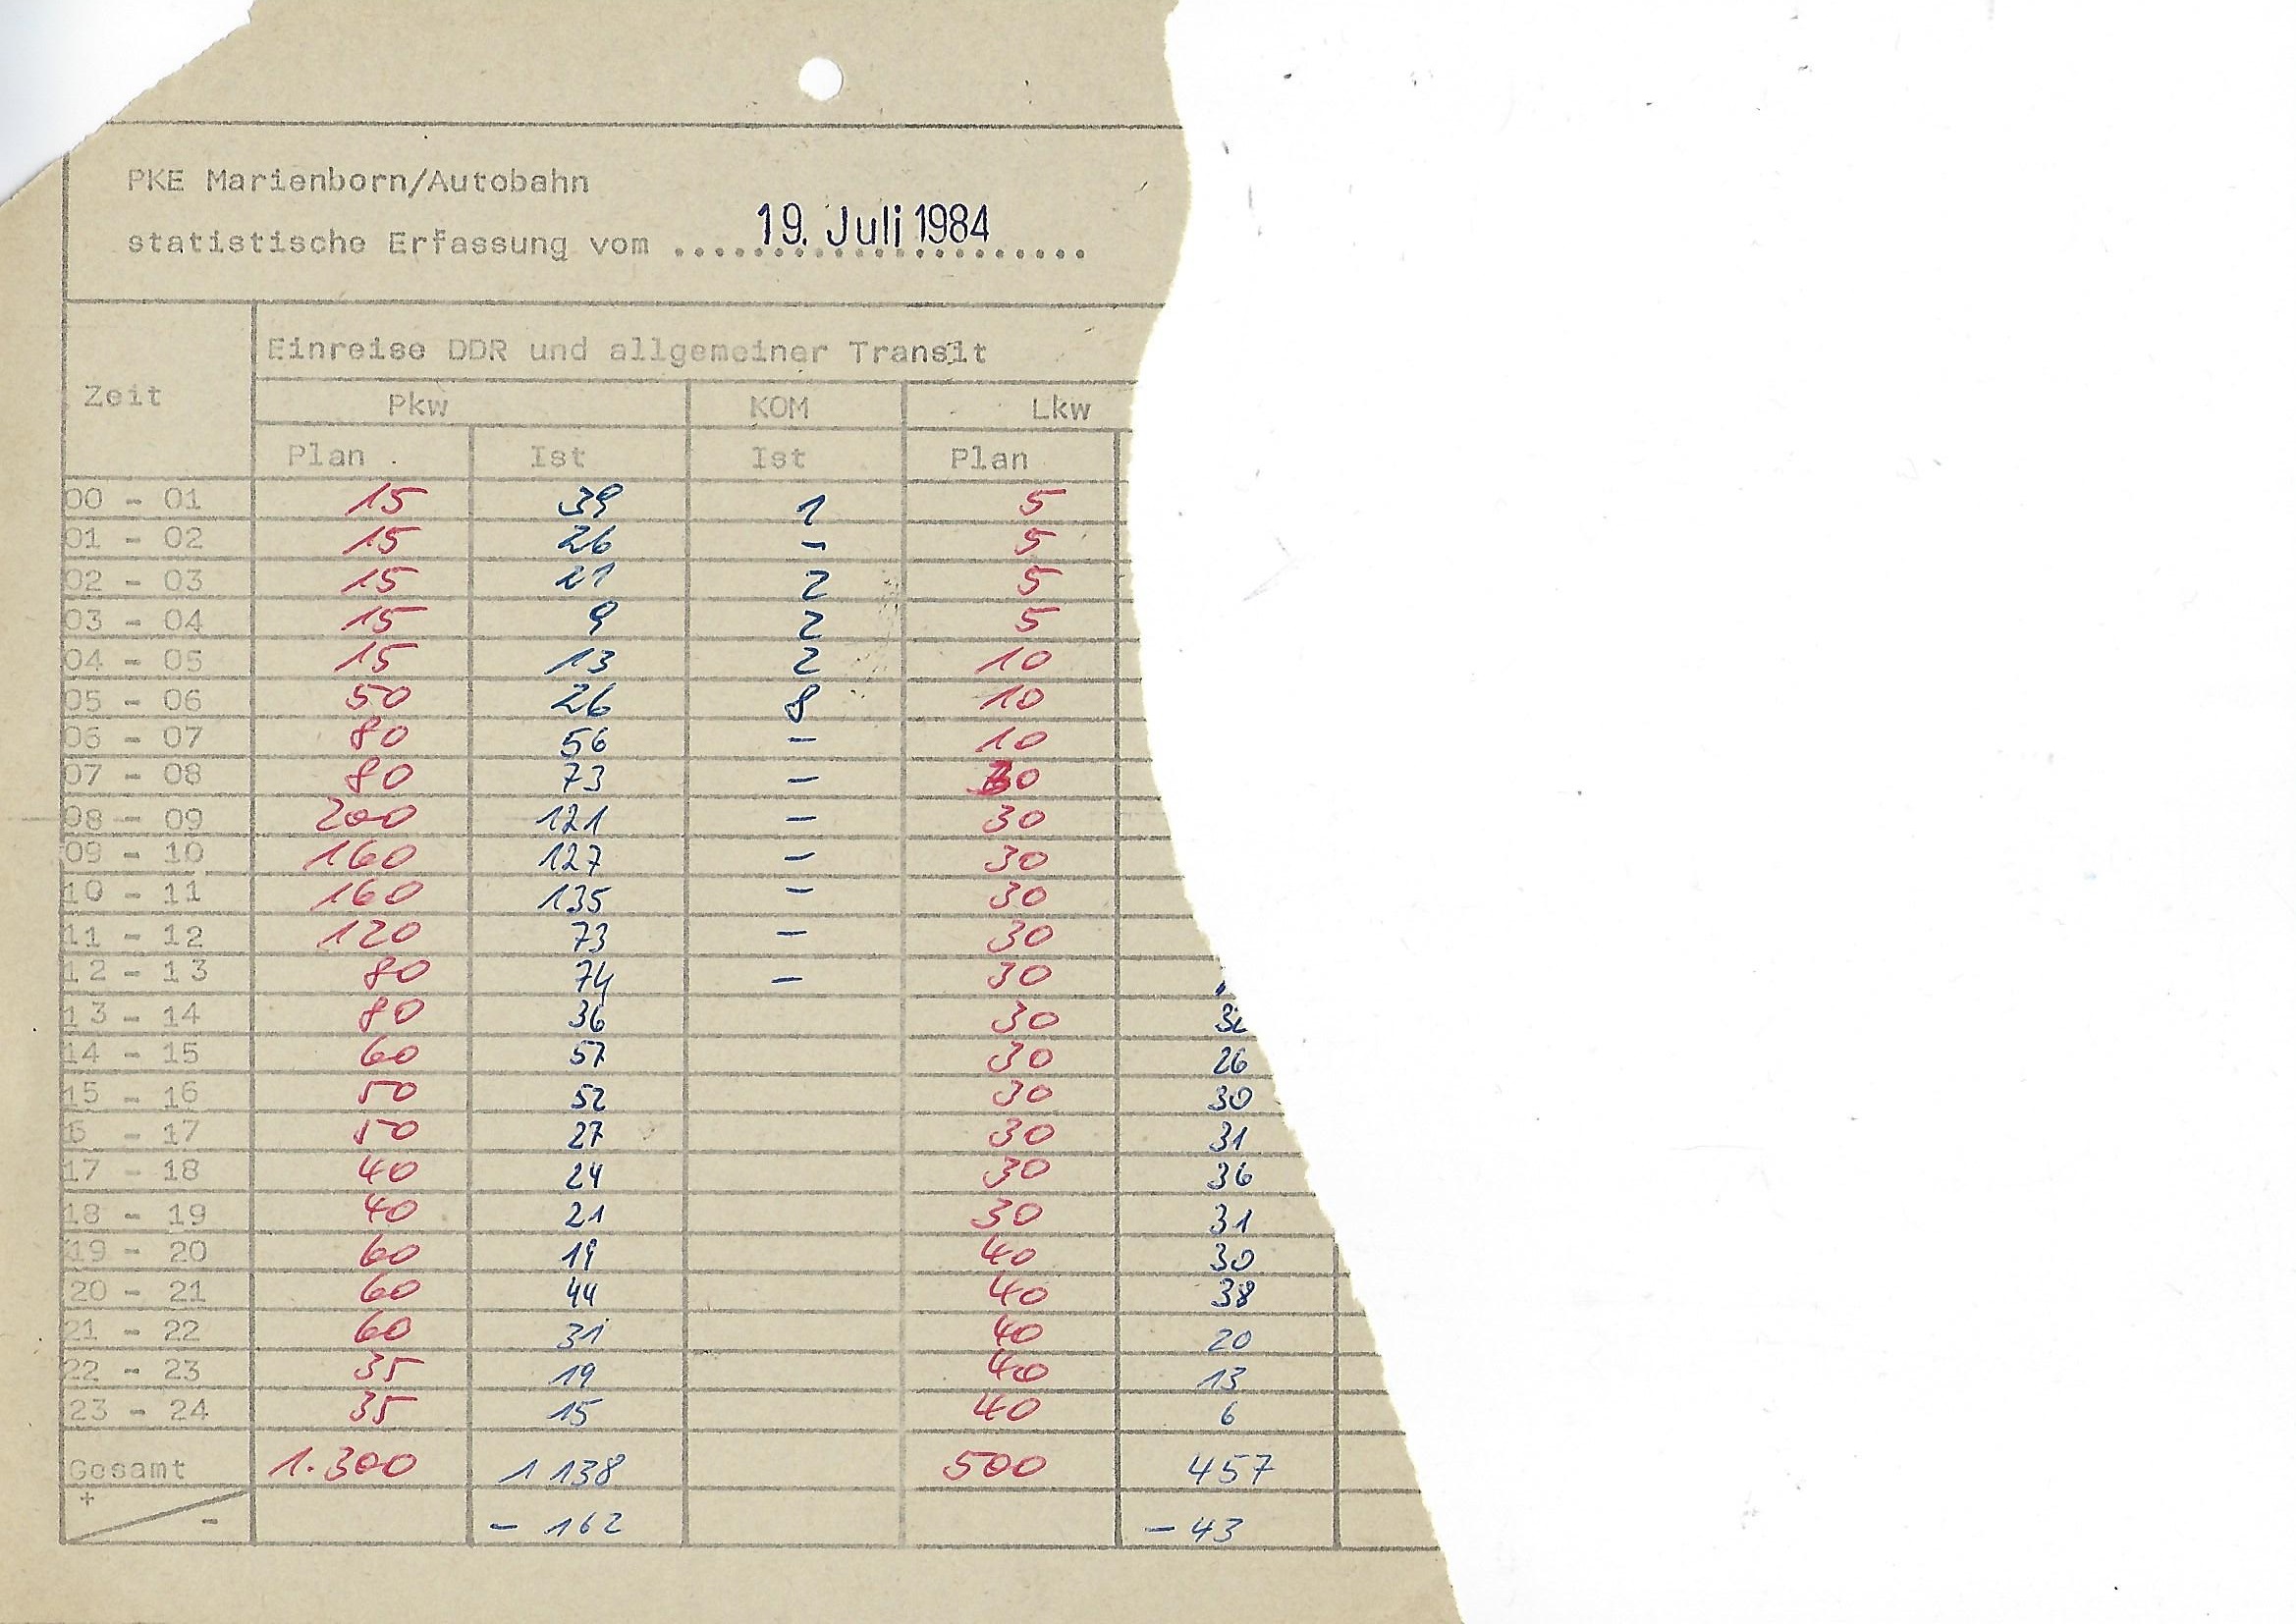 PKE Marienborn/Autobahn
statistische Erfassung vom 19. Juli 1984
Zeit Einreise DDR und allgemeiner Transit
Pkw KOM Lkw
Plan Ist Ist Plan
00 - 01 15 39 1 5
01 - 02 15 26 - 5
02 - 03 15 21 2 5
03 - 04 15 9 2 5
04 - 05 15 13 2 10
05 - 06 50 26 8 10
06 - 07 80 56 - 10
07 - 08 80 73 - 30
08 - 09 200 121 - 30
09 - 10 160 127 - 30
10 - 11 160 135 - 30
11 - 12 120 73 - 30
12 - 13 80 74 - 30
13 - 14 80 36 30
14 - 15 60 57 30 26
15 - 16 50 52 30 30
6 - 17 50 27 30 31
17 - 18 40 24 30 36
18 - 19 40 21 30 31
19 - 20 60 19 40 30
20 - 21 60 44 40 38
21 - 22 60 31 40 20
22 - 23 35 19 40 13
23 - 24 35 15 40 6
Gesamt 1.300 1 138 500 457
+ - - 162 - 43